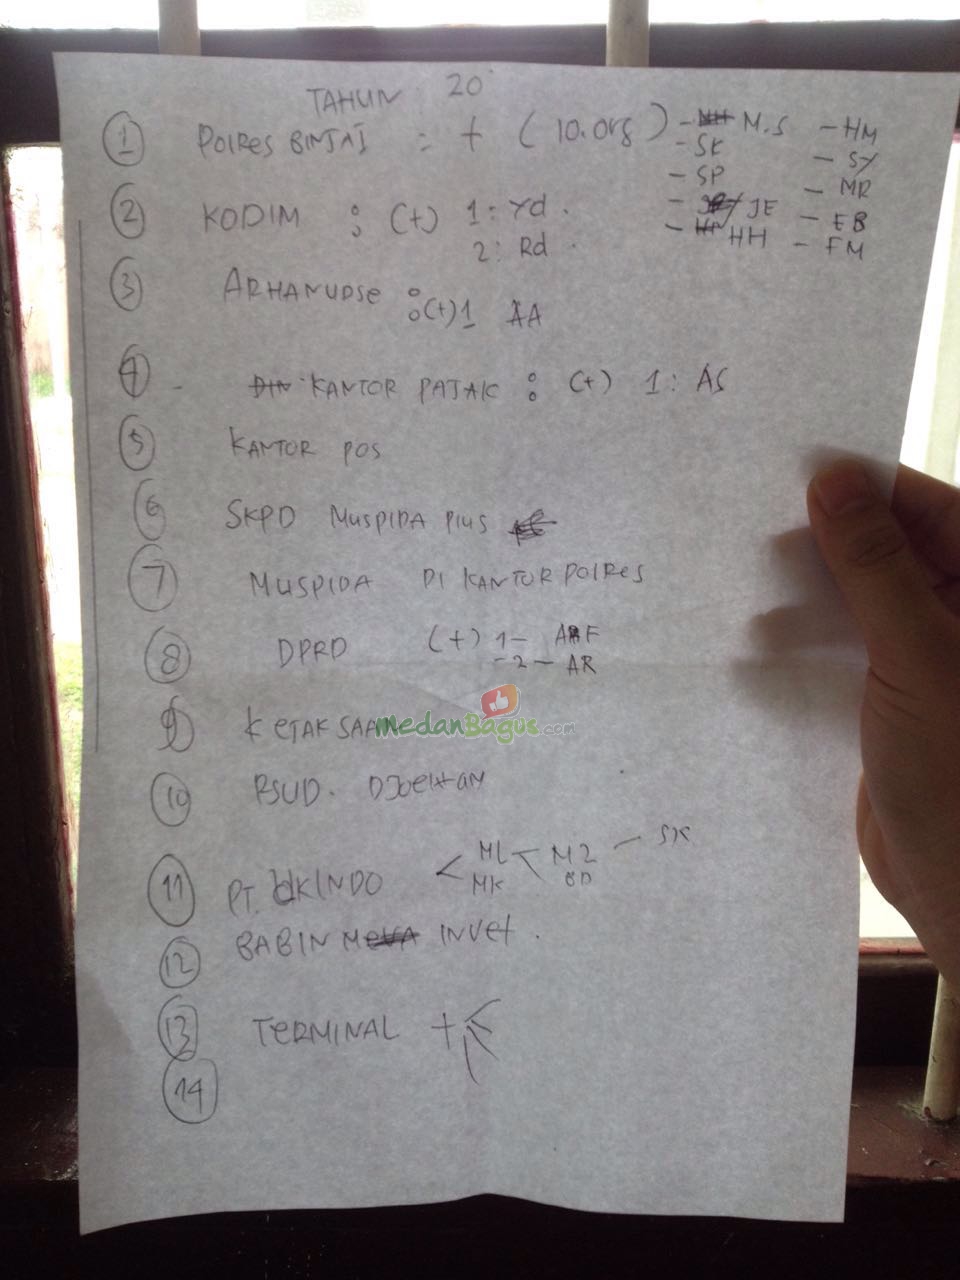 TAHUN : 20
1 POLRES BINJAI : + (10.org) - M.S - HM
- SK - SY
- SP - MR
- JE - EB
- HH - FM
2 KODIM : (+) 1: Yd.
2: Rd.
3 ARHANUDSE : (+) 1 AA
4 KANTOR PAJAK : (+) 1: AS
5 KANTOR POS
6 SKPD MUSPIDA PlUS
7 MUSPIDA DI KANTOR POLRES
8 DPRD (+) 1- ABF
-2- AR
9 KETAK
MedanBagus.com
10 RSUD. DJoelHAM
11 PT. KINDO < ML M2 - SK
MK BD
12 BABIN INVet.
13 TERMINAL +
14